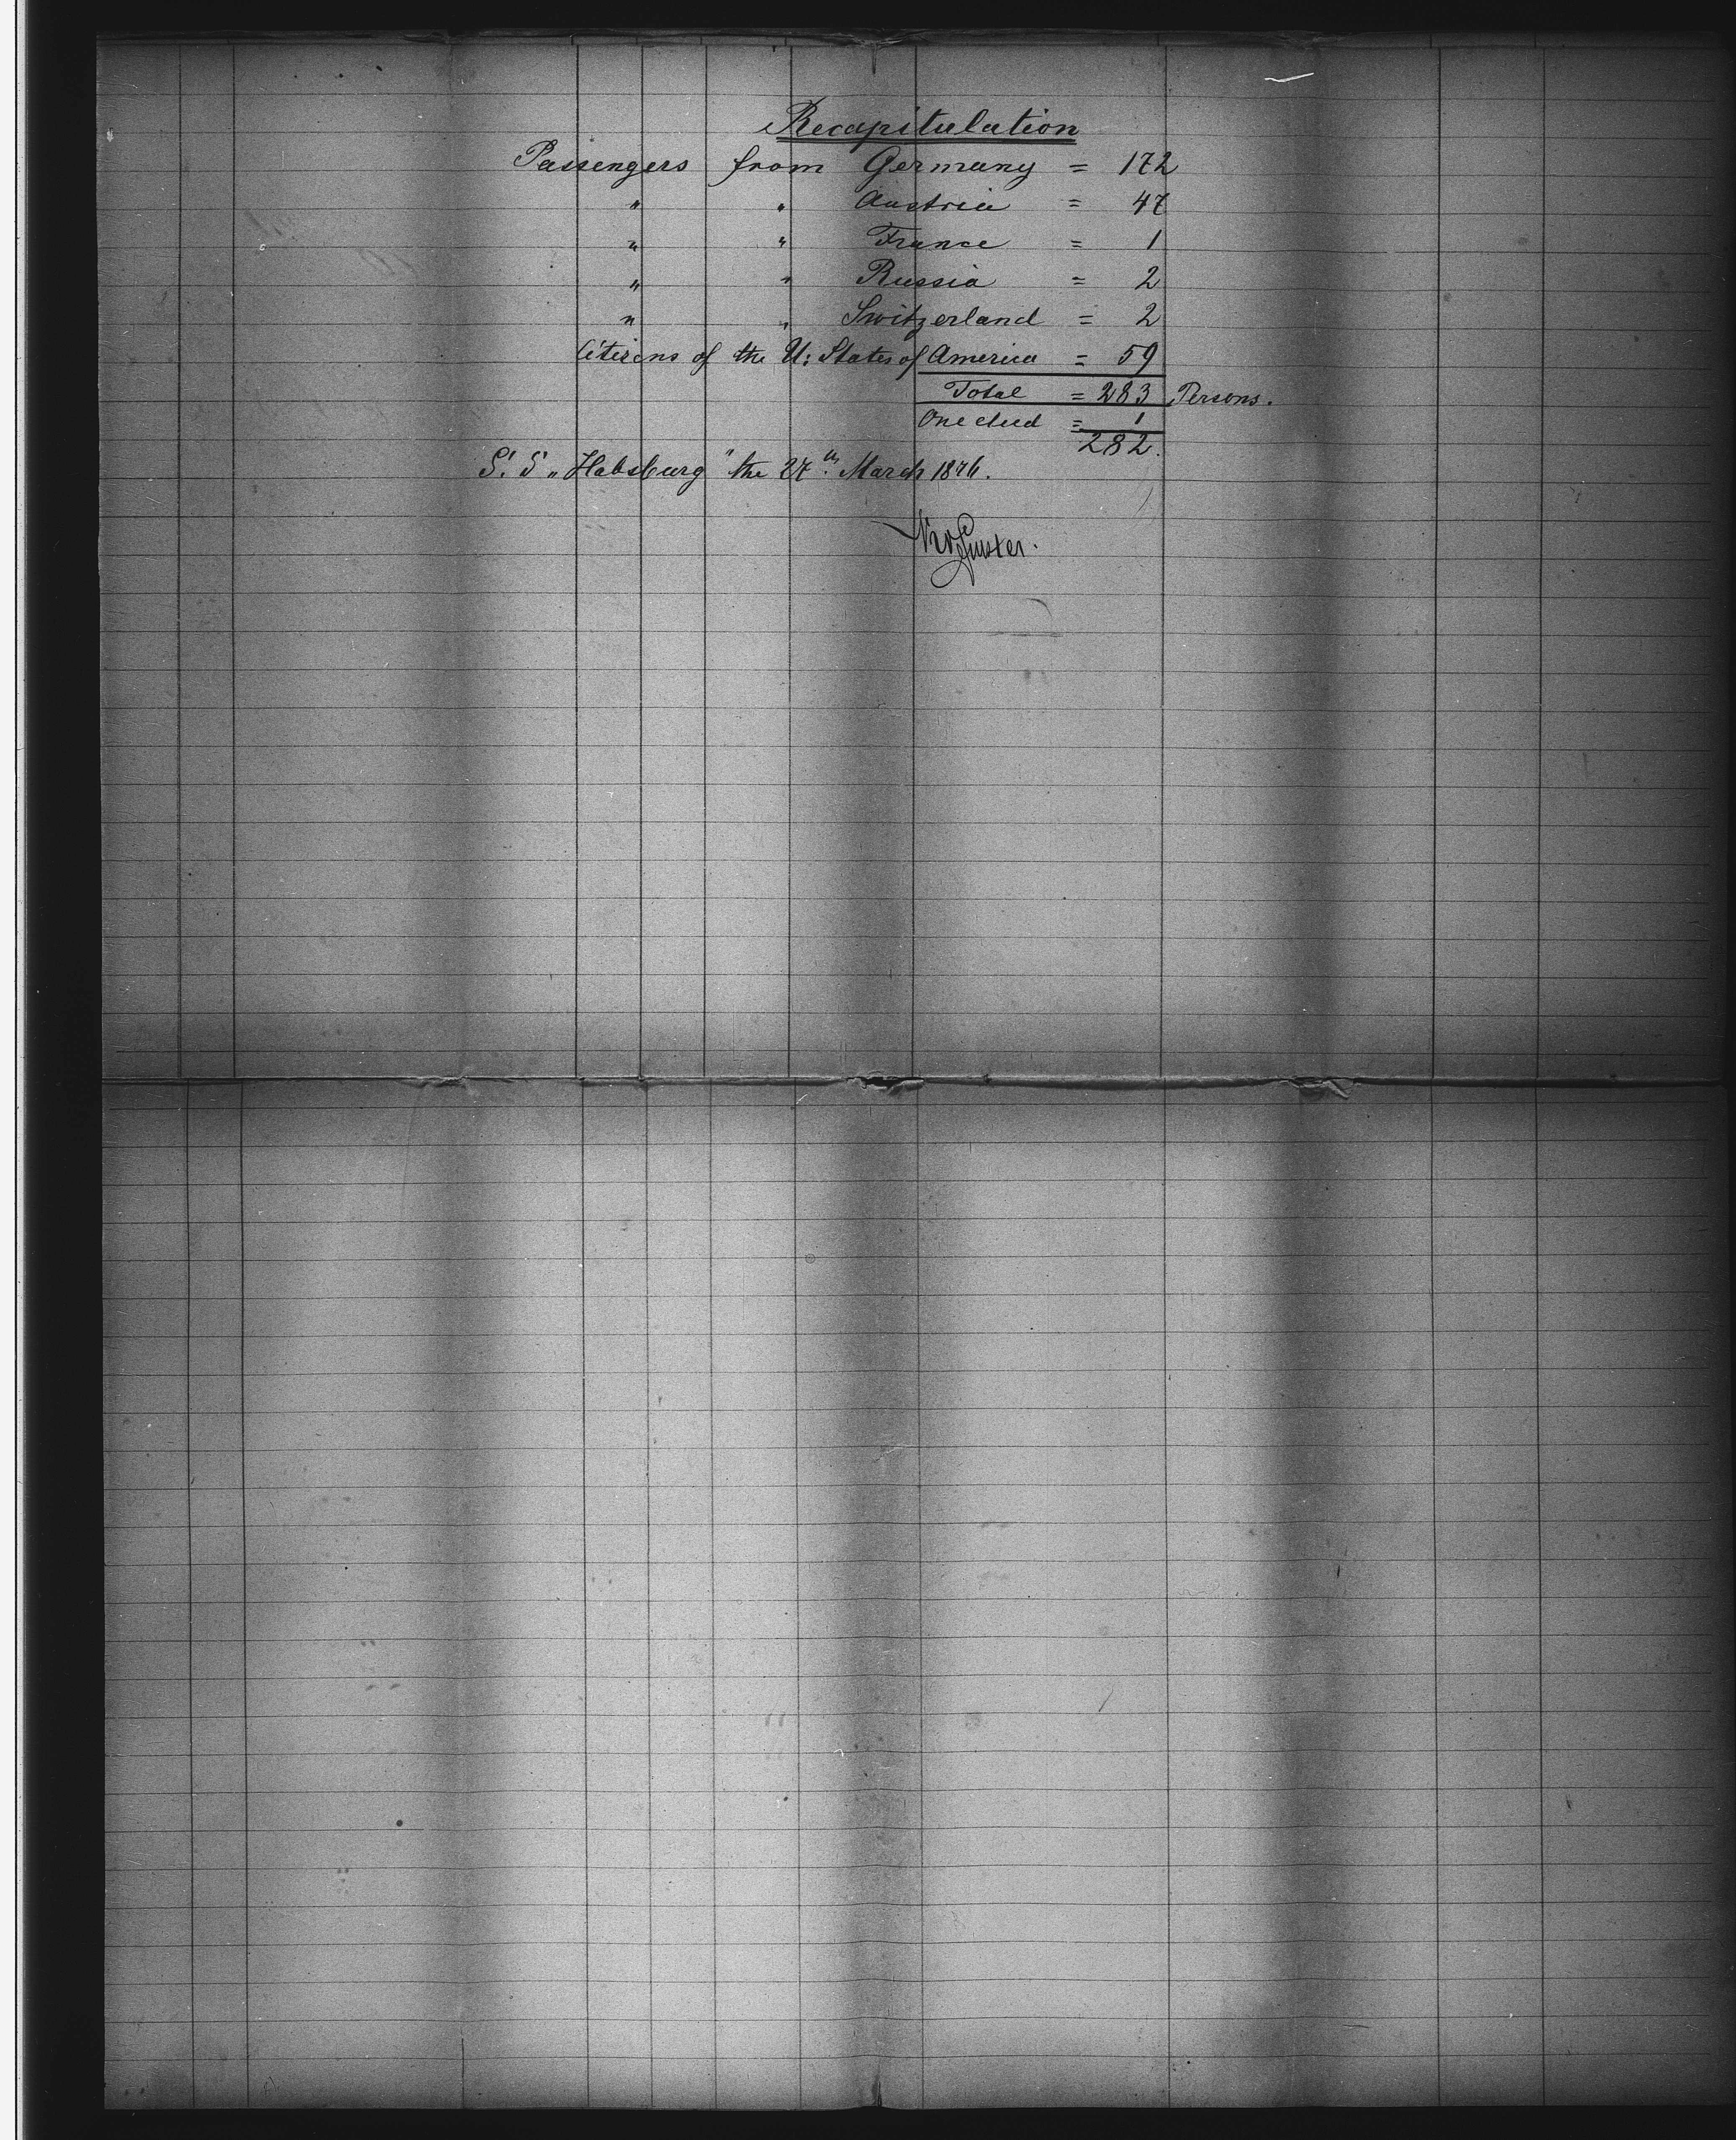 Recapitulation
Passengers from Germany = 172
" " Austria = 47
" " France = 1
" " Russia = 2
" " Switzerland = 2
Citizens of the U: States of America = 59
Total = 283 Persons.
One died = 1
282.
S. S „Habsburg" the 27th. March 1876.